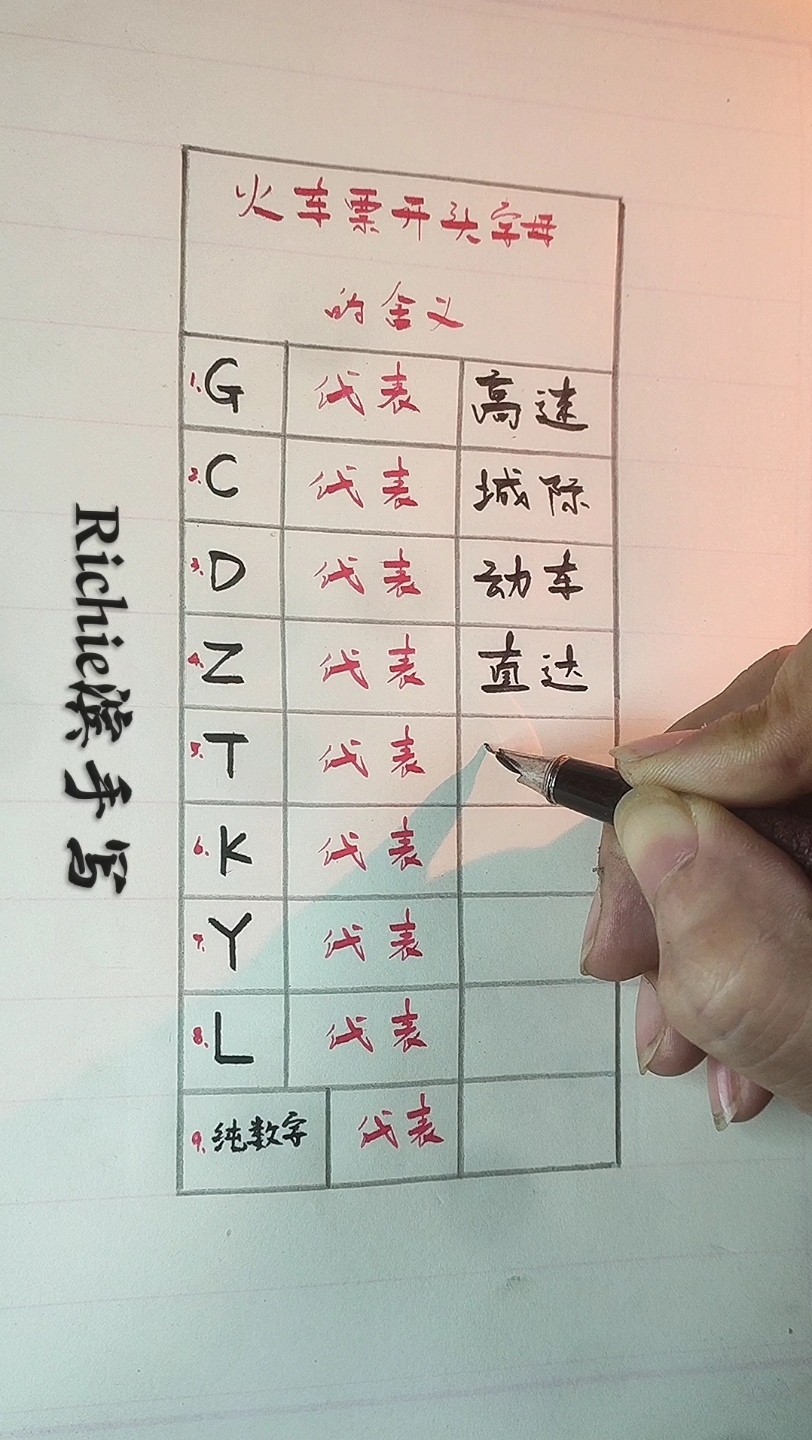 火车票开头字母
的含义
1.G 代表 高速
2.C 代表 城际
3.D 代表 动车
4.Z 代表 直达
5.T 代表
6.K 代表
7.Y 代表
8.L 代表
9.纯数字 代表
Richie滨手写